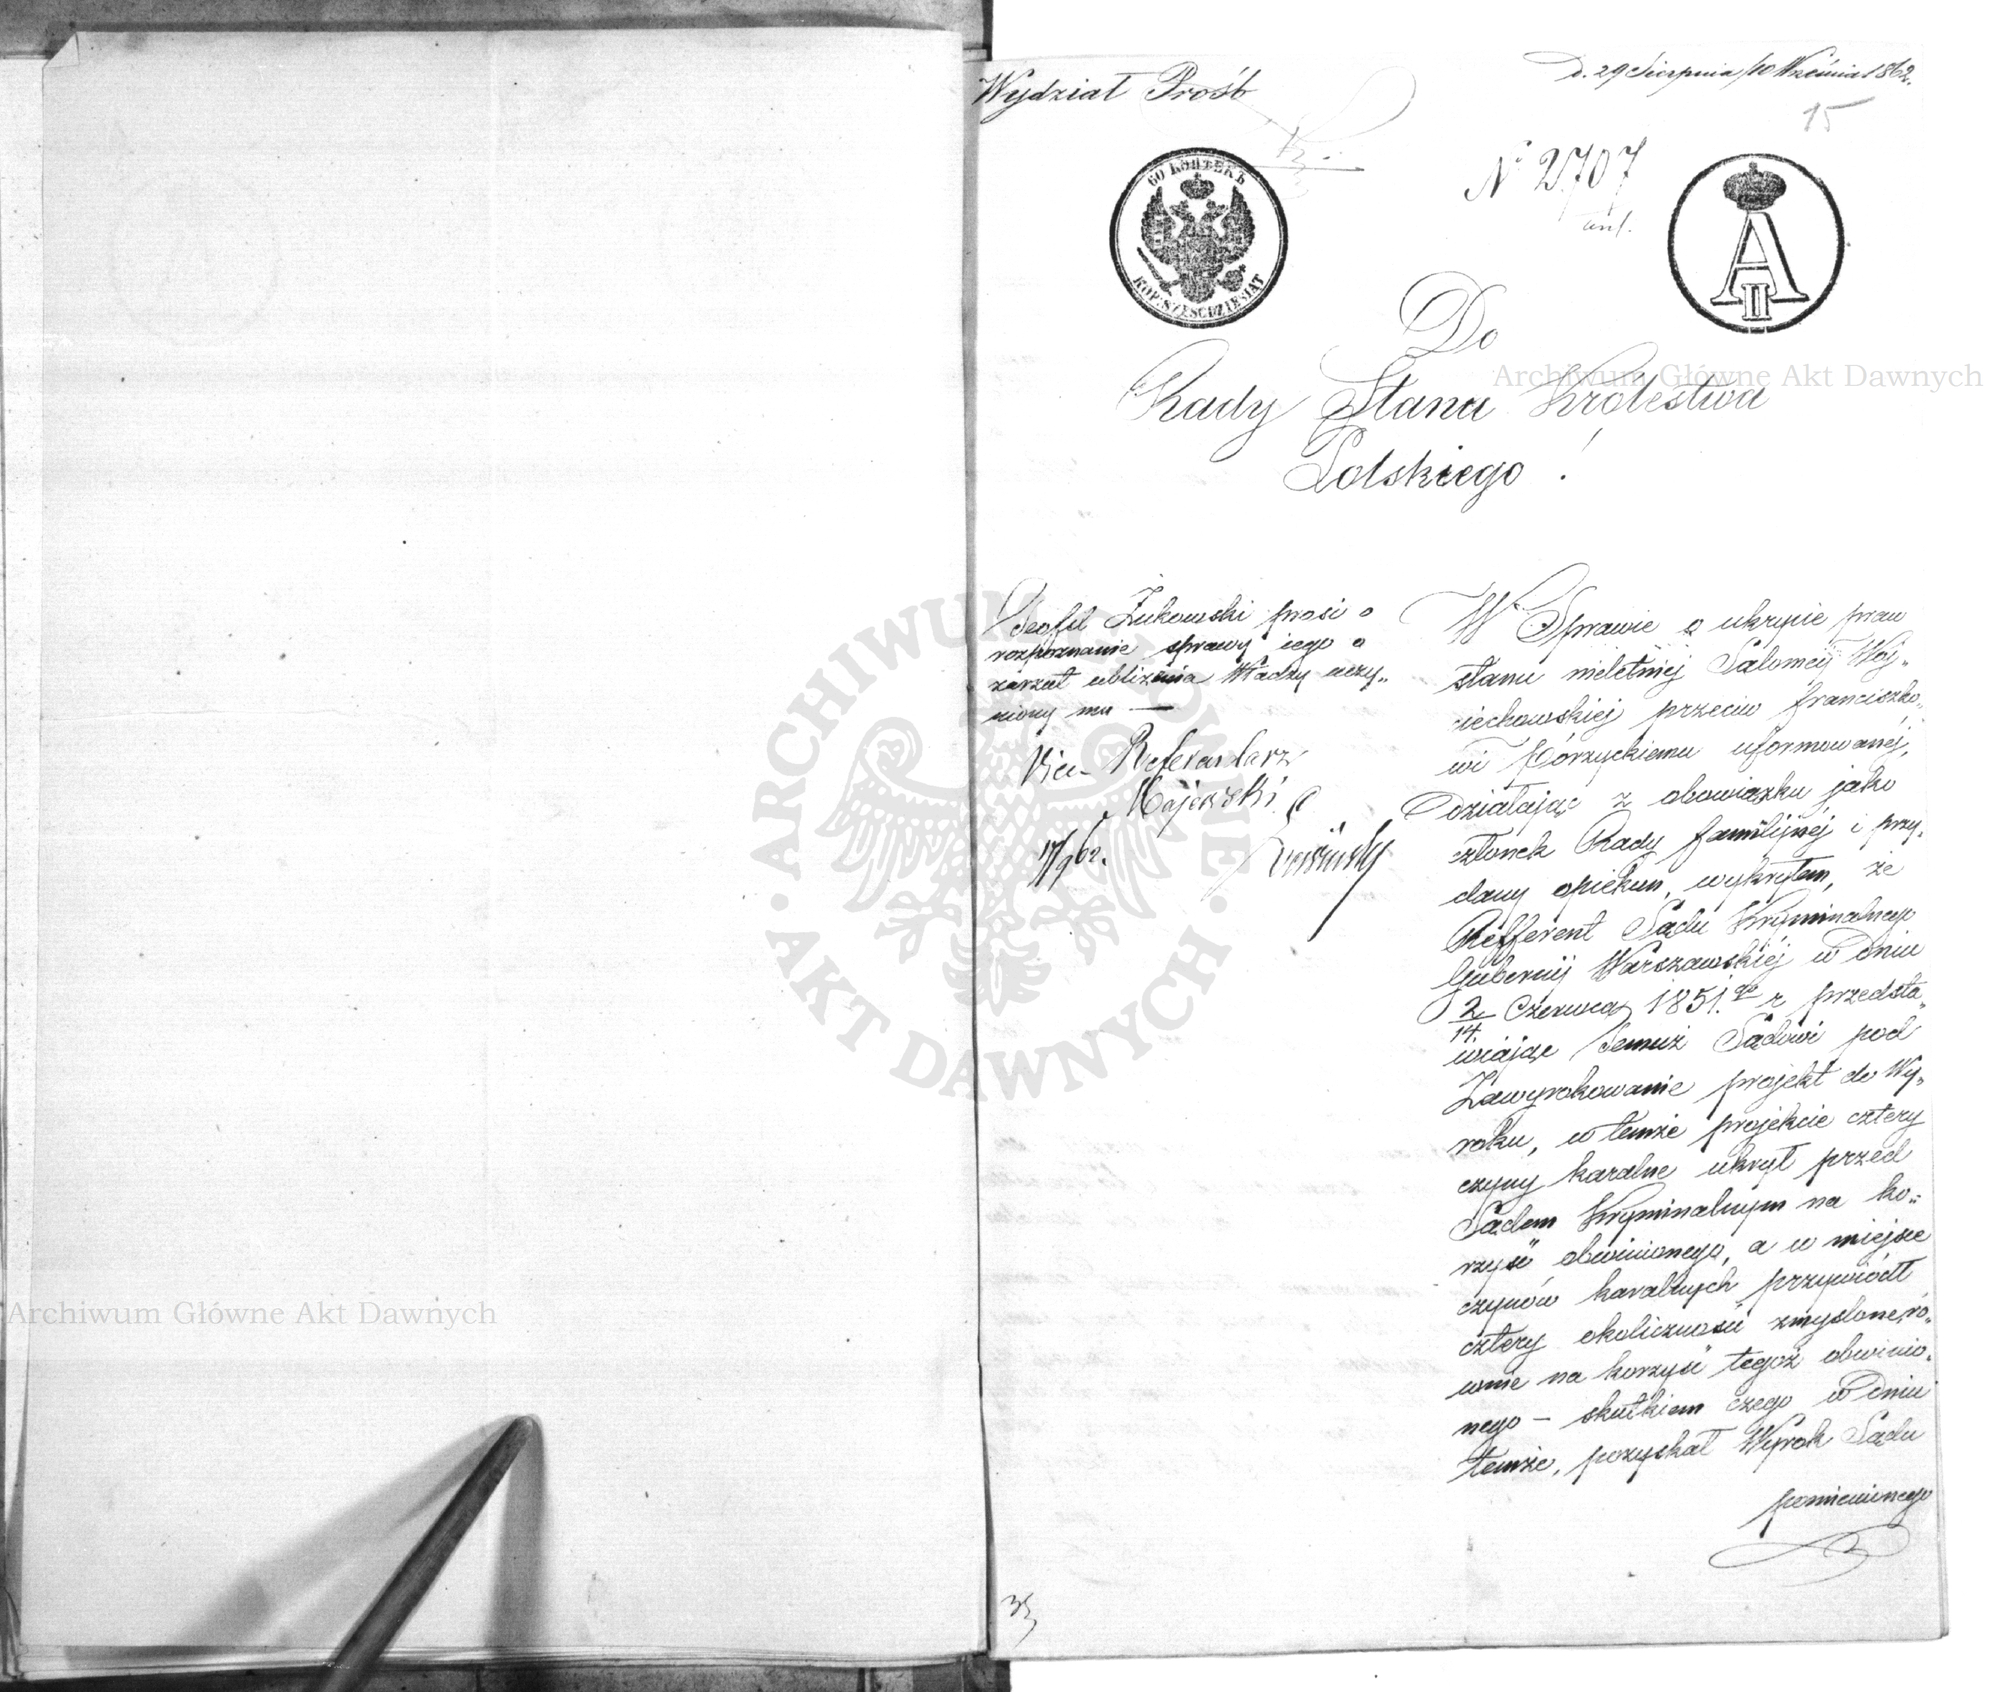 Wydział Próśb
D. 29 Sierpnia/10 Września 1862.
15
N 2707
60 КОПѢЕКЪ
KOP. SZEŚĆDZIESIĄT
A
II
Do
Rady Stanu Królestwa
Polskiego!
Teofil Żukowski prosi o
rozpoznanie sprawy iego o
zarzut ubliżenia Władzy uczy„
niony mu —
Vice Referendarz
Majewski
17/9 62.
W Sprawie o ukrycie praw
stanu nieletniej Salomeij Woj„
ciechowskiej przeciw franciszko„
wi Górzyckiemu uformowanéj,
Działając z obowiązku jako
członek Rady familijnéj i przy„
dany opiekun, wykryłem, że
Refferent Sądu Kryminalnego
Gubernij Warszawskiéj w Dniu
2/14 Czerwca 1851.go r przedsta„
wiając Temuż Sądowi pod
Zawyrokowanie projekt do Wy„
roku, w temże projekcie cztery
czyny karalne ukrył przed
Sądem Kryminalnym na ko„
rzyść obwinionego, a w miejsce
czynów karalnych przywiódł
cztery okoliczności zmyślone, ró„
wnie na korzyść tegoż obwinio„
nego — skutkiem czego w Dniu
temże, pozyskał Wyrok Sądu
pomienionego
Archiwum Główne Akt Dawnych
Archiwum Główne Akt Dawnych
ARCHIWUM GŁÓWNE
AKT DAWNYCH